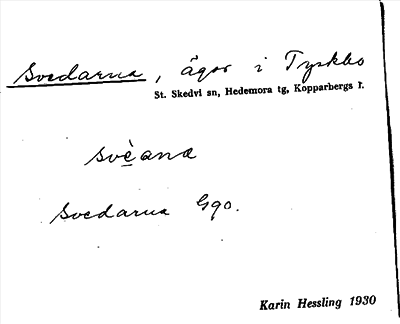 Svedarna, ägor i Tyskbo
St. Skedvi sn, Hedemora tg, Kopparbergs l.
svèana
Svedarna Ggo.
Karin Hessling 1930